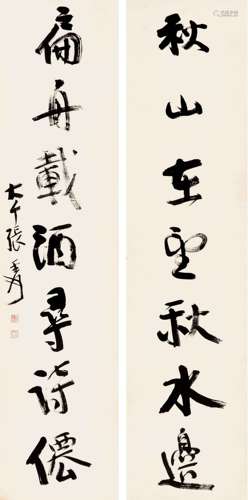 秋山在望秋水邊
扁舟載酒尋詩僊
大千張爰